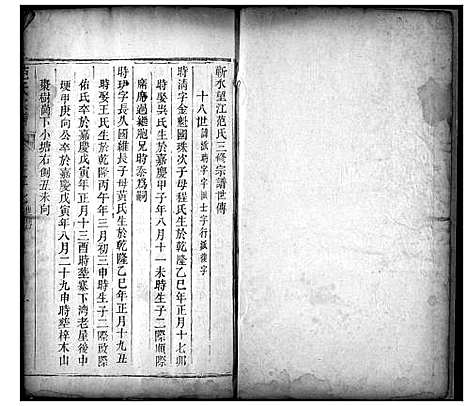 蘄水望江范氏三修宗譜世傳
十八世
時清字金魁國珠次子母程氏生於乾隆乙巳年正月十七卯
時娶吳氏生於嘉慶甲子年八月十一未時生子二際順際
庸過繼胞兄時泰爲嗣
時字長久國維長子母黃氏生於乾隆乙巳年正月十九丑
時娶王氏生於乾隆丙午年三月初三申時生子二際啟際
佑氏卒於嘉慶戊寅年正月十三酉時塟寨下湾老屋後中
埂甲庚向公卒於嘉慶戊寅年八月二十九申時塟梓木山
棗樹下小塘右側丑未向